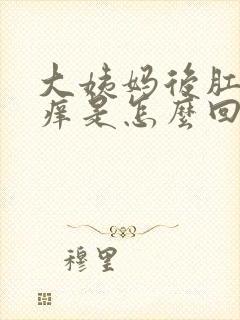 大姨妈后肛
痒是怎麽回
穆里